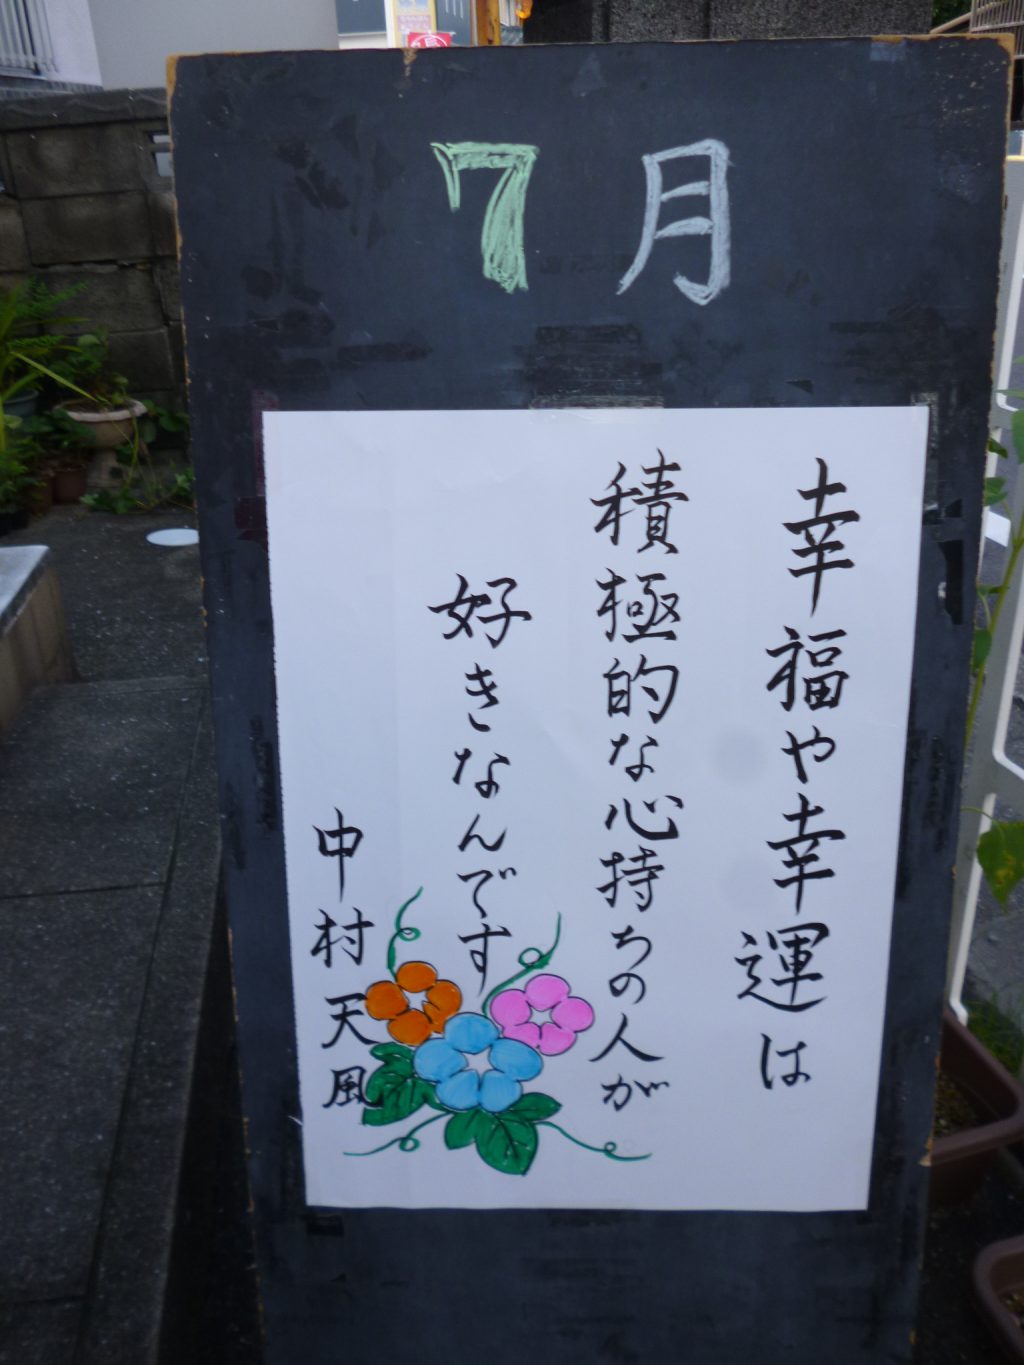 7月
幸福や幸運は
積極的な心持ちの人が
好きなんです
中村天風